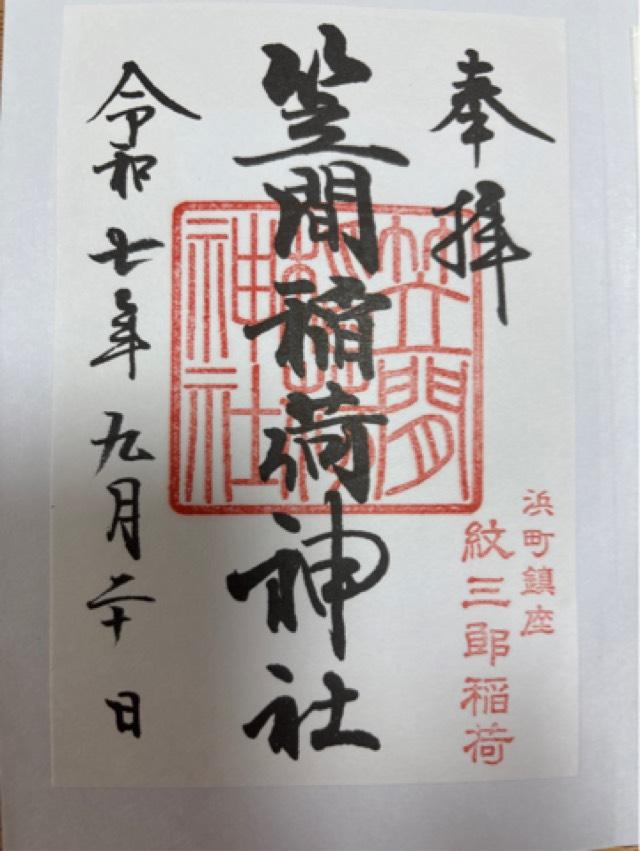 奉拝
浜町鎮座
紋三郎稲荷
笠間稲荷神社
笠間
稲荷
神社
令和七年九月二十日